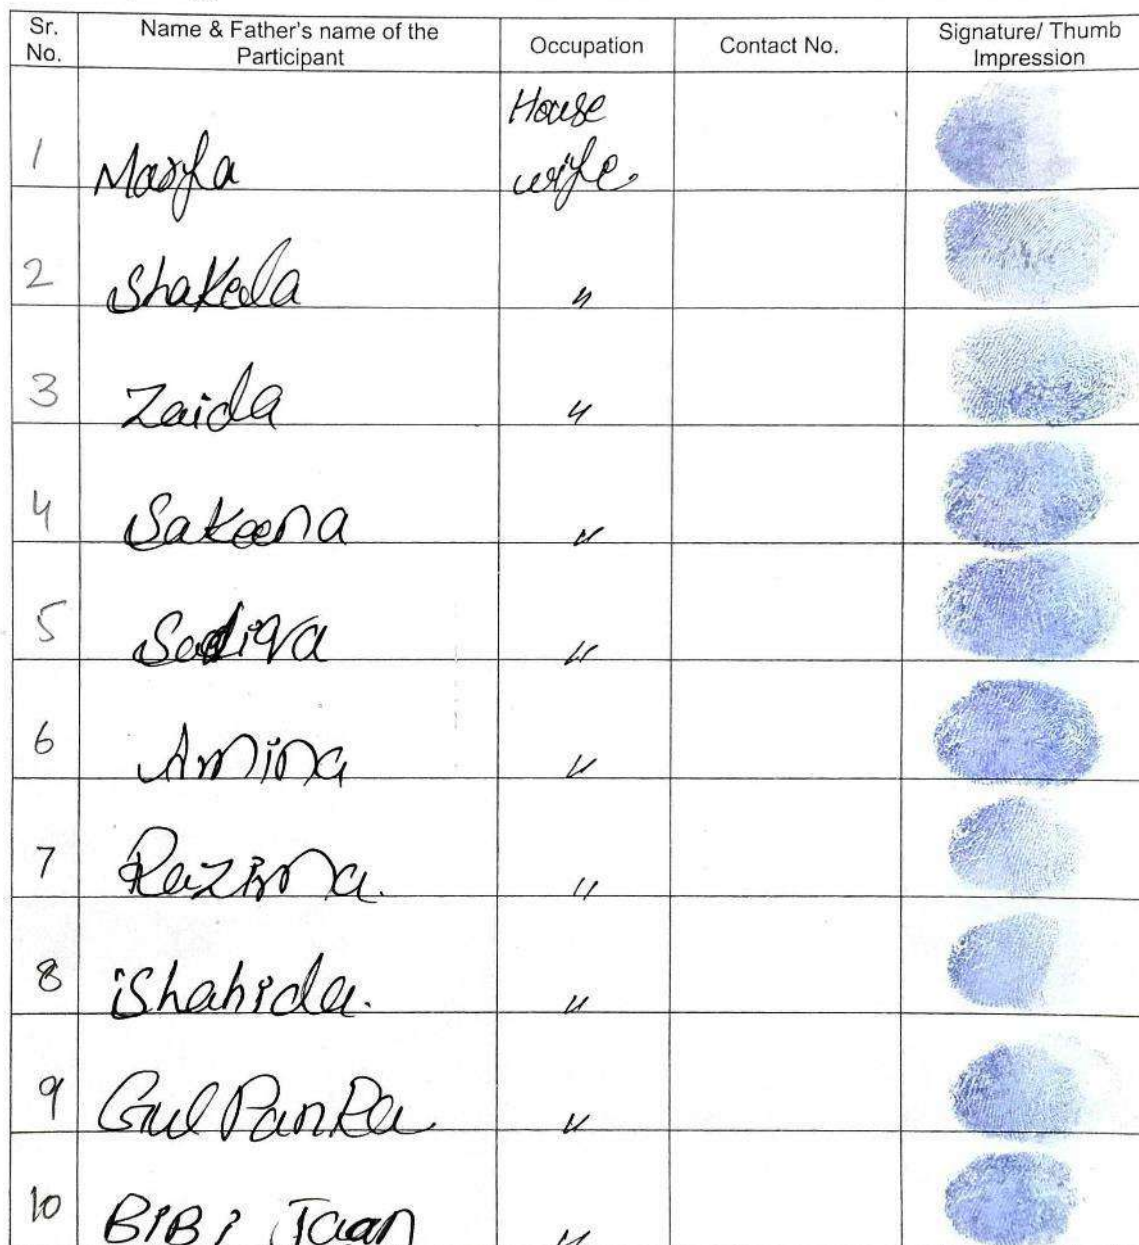 Sr. No. Name & Father's name of the Participant Occupation Contact No. Signature/ Thumb Impression
1 House wife
2 Shakeela "
3 Zaida "
4 Sakeena "
5 Sadiqa "
6 Amina "
7 Razima. "
8 Shahida. "
9 Gul Panra "
10 BiBi Jaan "